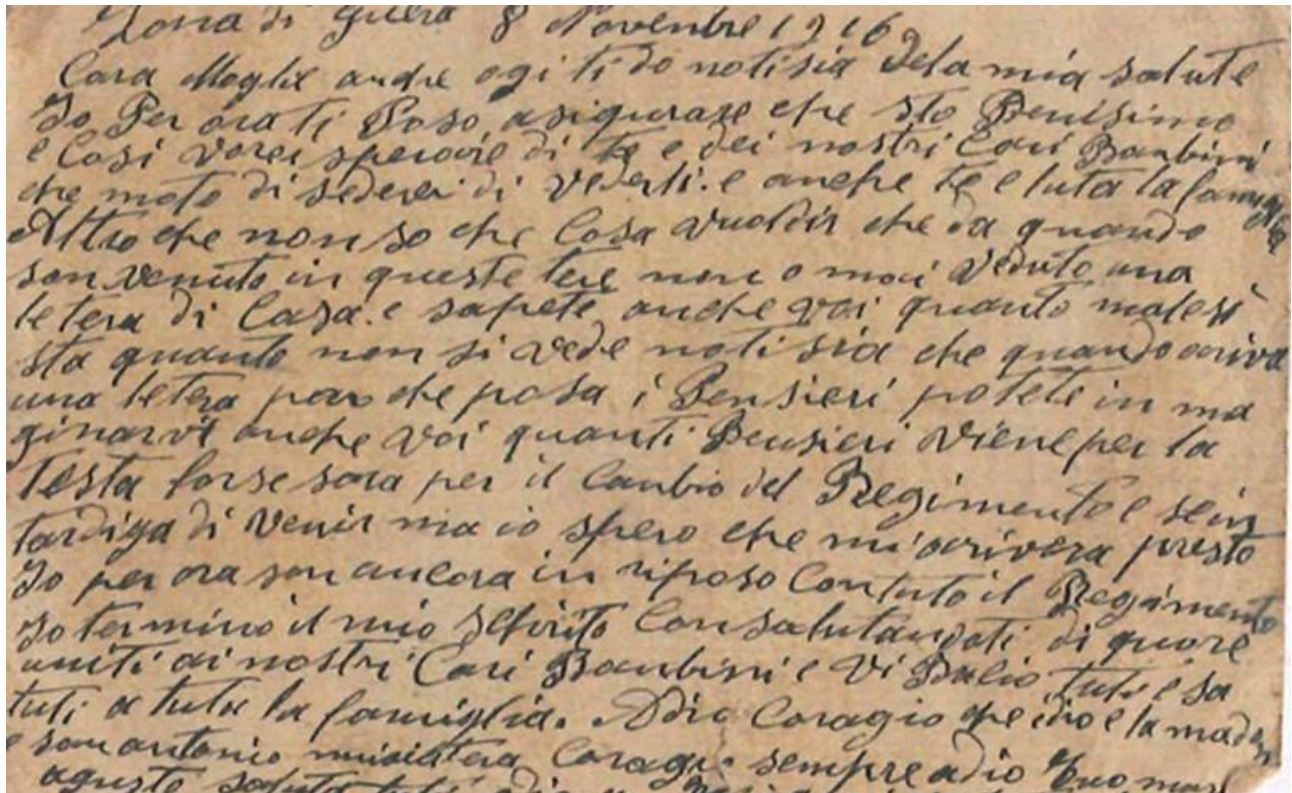 Zona di guera 8 Novenbre 1916
Cara Moglie anche ogi ti do notisia dela mia salute
Io Per ora ti Poso asigurare che sto Benisimo
e Cosi vorei sperare di te e dei nostri Cari Banbini
che moto di sederei di vederli e anche te e tuta la famiglia
Altro che non so che Cosa vuoldir che da quando
son venuto in queste tere non o mai veduto una
letera di Casa. e sapete anche voi quanto male si
sta quanto non si vede notisia che quando ariva
una letera par che pasa i Pensieri potete in ma
ginarvi anche voi quanti Pensieri viene per la
testa forse sara per il Canbio del Regimento e se in
tardiga di venir ma io spero che mi arivera presto
Io per ora son ancora in riposo Con tuto il Regimento
Io termino il mio scrito Con salutandoti di quore
uniti ai nostri Cari Banbini e vi Bacio tuti e sa
tuti a tuta la famiglia. Adio Coragio che idio e la madon
e san antonio Coragio sempre adio tuo mar